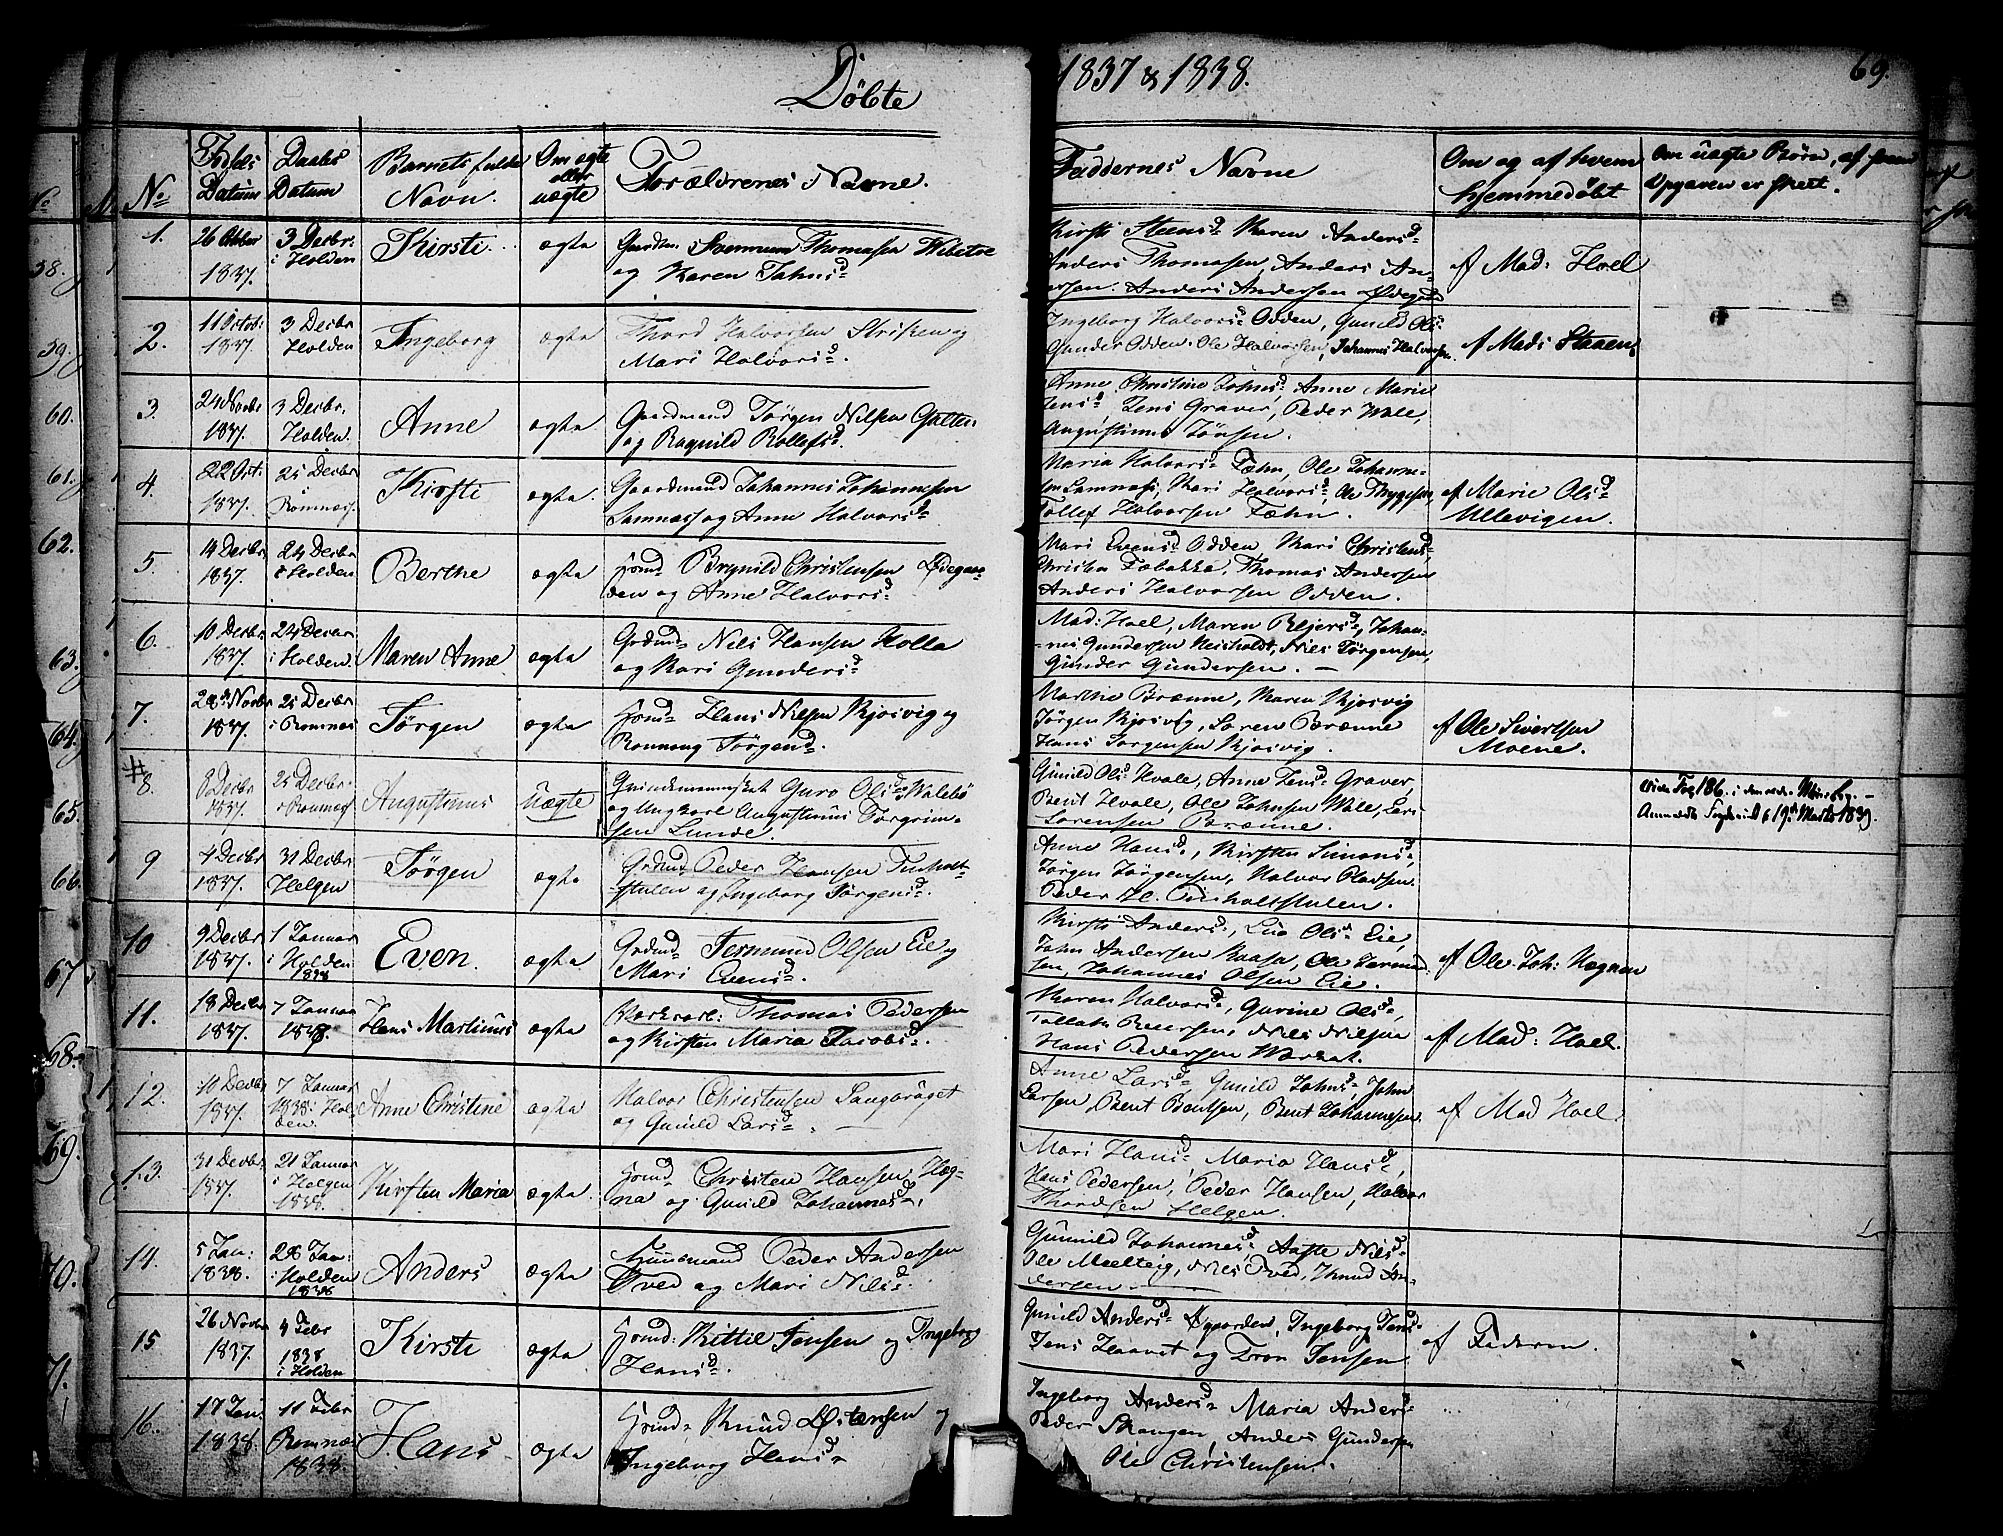 Døbte
1837 & 1838.
69.
No
Fødsels Datum
Daabs Datum
Barnets fulde Navn.
Om ægte eller uægte
Forældrenes Navne.
Faddernes Navne
Om og af hvem hjemmedøbt
Om uægte Børn, af hvem Opgaven er skeet.
1.
26 Octbr 1837.
3 Decbr. i Holden
Kirsti
ægta
Thomassen
og Karen Jahnsd
Kirsti Steensd Karen Andersd
Anders Thomassen, Anders An-
ersen. Anders Andersen Ødegrd
af Mad: Hoel
2.
11 Octob: 1837.
3 Decbr Holden
Ingeborg
ægta
Thord Halvorsen Strisken og
Mari Halvorsd.
Ingeborg Halvorsd Odden, Gunild Olsd
Gunder Odden. Ole Halvorsen, Johannes Halvorsen.
af Mad: Staaen
3.
24 Novbr 1837.
3 Decbr. Holden.
Anne
ægta
Gaardmand Jørgen Nilsen Galten
og Ragnild Rollefsd.
Anne Christine Jahnsd, Anne Maria
Jensd, Jens Graver, Peder Wale,
Augustinus Jønsen.
4.
22 Oct: 1837.
25 Decbr Romnæs.
Kirsti
ægta.
Gaardmand Johannes Johannesen
Namnæss og Anne Halvorsd
Maria Halvorsd Fæhn, Ole Johanne-
sen Namnæss, Kari Halvorsd, Ole Thygesen,
Tollef Halvorsen Fæhn.
af Marie Olsd Ullevigen.
5.
14 Decbr. 1837.
24 Decbr Holden
Berthe
ægta
Grmd Brynild Christensen Ødegaar-
den og Anne Halvorsd.
Mari Evensd Odden, Kari Christensd,
Christen Tabakka, Thomas Andersen
Anders Halvorsen Odden.
6.
10 Decbr. 1837.
24 Decbr i Holden.
Maren Anne
ægta
Grdmd Nils Hansen Holla
og Kari Gundersd
Mad: Hoel, Maren Rejersd, Johan-
nes Gundersen Neisholdt, Nils Jørgensen,
Gunder Gundersen.
7.
28 Novbr 1837.
25 Decbr i Romnæs
Jørgen
ægta
Grmd Hans Nilsen Kjosvig og
Ronnaug Jørgensd.
Marthe Brænne, Maren Kjosvig
Jørgen Kjosvig, Søren Brænne
Hans Sørgensen Kjosvig.
af Ole Sivertsen Moene.
8.
8 Decbr 1837.
25 Decbr. i Romnæs
Augustinus
uægte
Qvindemennesket Guro Olsd Walebø
og Ungkarl Augustinus Torgrim-
sen Lunde.
Gunild Olsd Hvale, Anne Jensd Graver,
Bent Hvale, Ole Johnsen Wale, Lars
Sørensen Brænne.
9
4 Decbr 1837.
31 Decbr. Helgen
Jørgen
ægta
Grdmd Peder Hansen Tinholt-
stulen og Ingeborg Jørgensd.
Anne Hansd, Kirsten Simonsd,
Jørgen Jørgensen, Halvor Oladsen.
Peder H. Tinholtstulen.
10
9 Decbr 1837.
1 Januar i Holden 1838
Even.
ægta
Grdmd Tormund Olsen Eie og
Mari Evensd.
Kirsti Andersd, Lue Olsd Eie,
John Andersen Kaasa, Ole Tormund-
sen, Johannes Olsen Eie.
af Ole Joh: Hægnen
11.
18 Decbr 1837.
7 Januar 1838.
Hans Martinus
ægta
Thomas Pedersen
og Kirsten Maria Jacobsd.
Karen Halvorsd, Gurine Olsd,
Tollak Peersen, Nils Nilsen
Hans Pedersen Wærket.
af Mad: Hoel.
12.
10 Decbr 1837.
7 Januar 1838 i Hol-
den.
Anne Christine
ægta
Halvor Christensen Langerøget
og Gunild Larsd.
Anne Larsd, Gunild Johnsd, John
Larsen, Bent Bentsen, Bent Johannesen.
af Mad Hoel.
13.
31 Decbr. 1837.
21 Januar i Helgen 1838.
Kirsten Maria
ægta.
Grmd Christen Hansen Hæg-
na og Gunild Johannesd.
Mari Hansd, Maria Hansd,
Hans Pedersen, Peder Hansen, Halvor
Thordsen Helgen.
14.
5 Jan: 1838.
28 Jan: i Holden 1838
Anders
ægta
Huusmand Peder Andersen
Tved og Mari Nilsd.
Gunnild Johannesd, Aaste Nilsd
Ole Meelteig, Nils Tved, Knud An-
dersen.
15
26 Novbr 1837.
4 Febr 1838 i Holden
Kirsti
ægta
Grmd: Kittil Jensen og Ingeborg
Hansd.
Gunild Andersd Øgaarden, Ingeborg Jensd
Jens Haavet og Tron Jensen
af Faderen.
16.
17 Jan. 1838.
11 Febr Romnæs 1838.
Hans
ægta
Grmd Knud Østensen og
Ingeborg Hansd
Ingeborg Andersd Maria Andersd
Peder Skougen, Anders Gundersen
Ole Christensen.